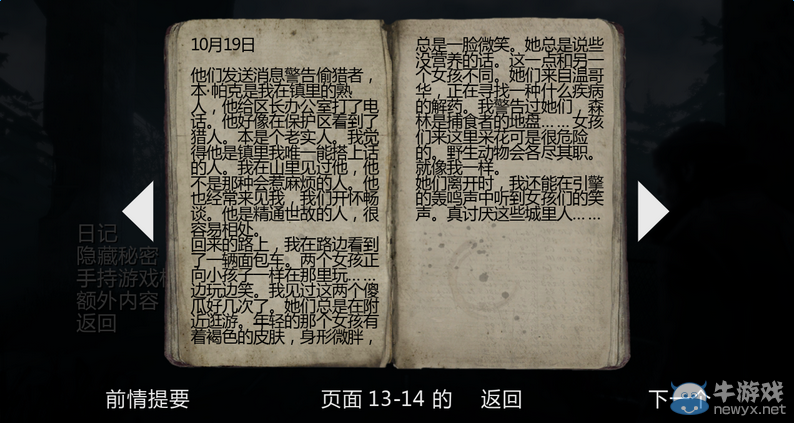 10月19日
他们发送消息警告偷猎者，
本·帕克是我在镇里的熟
人，他给区长办公室打了电
话。他好像在保护区看到了
猎人。本是个老实人。我觉
得他是镇里我唯一能搭上话
的人。我在山里见过他，他
不是那种会惹麻烦的人。他
也经常来见我，我们开怀畅
谈。他是精通世故的人，很
容易相处。
回来的路上，我在路边看到
了一辆面包车。两个女孩正
向小孩子一样在那里玩……
边玩边笑。我见过这两个傻
瓜好几次了。她们总是在附
近逛游。年轻的那个女孩有
着褐色的皮肤，身形微胖，
总是一脸微笑。她总是说些
没营养的话。这一点和另一
个女孩不同。她们来自温哥
华，正在寻找一种什么疾病
的解药。我警告过她们，森
林是捕食者的地盘……女孩
们来这里采花可是很危险
的。野生动物会各尽其职。
就像我一样。
她们离开时，我还能在引擎
的轰鸣声中听到女孩们的笑
声。真讨厌这些城里人……
日记
隐藏秘密
手持游戏机
额外内容
返回
前情提要
页面 13-14 的
返回
下一个
牛游戏
newyx.net